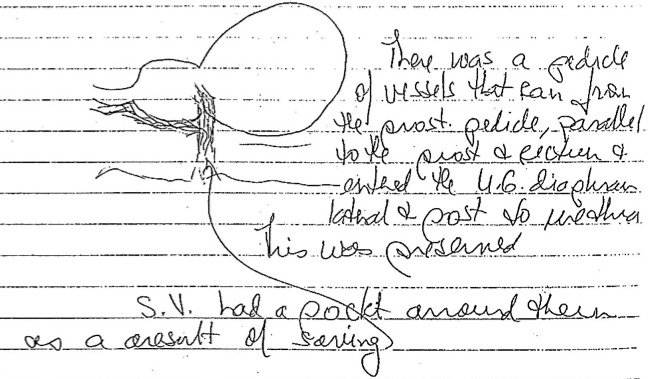 There was a pedicle
of vessels that ran from
the prost. pedicle, parallel
to the prost & rectum &
entered the U.G. diaphram
lateral & post to urethra
This was preserved
S.V. had a pockt arround them
as a result of saving